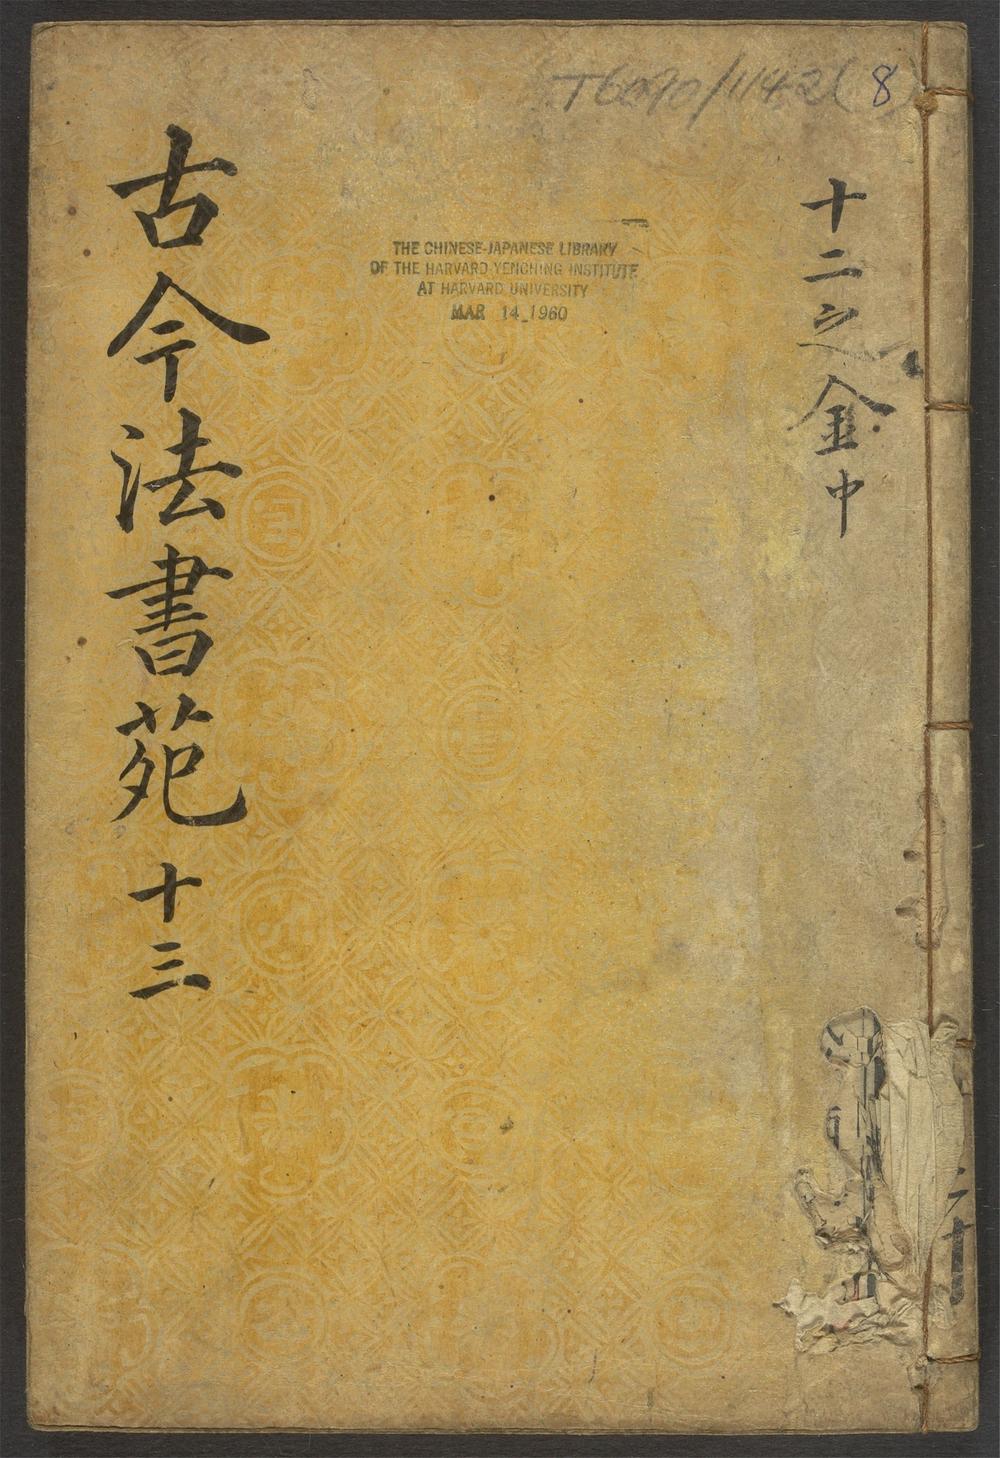 T6070/1142(8)
十二之金中
THE CHINESE-JAPANESE LIBRARY
OF THE HARVARD-YENCHING INSTITUTE
AT HARVARD UNIVERSITY
MAR 14 1960
古今法書苑 十三